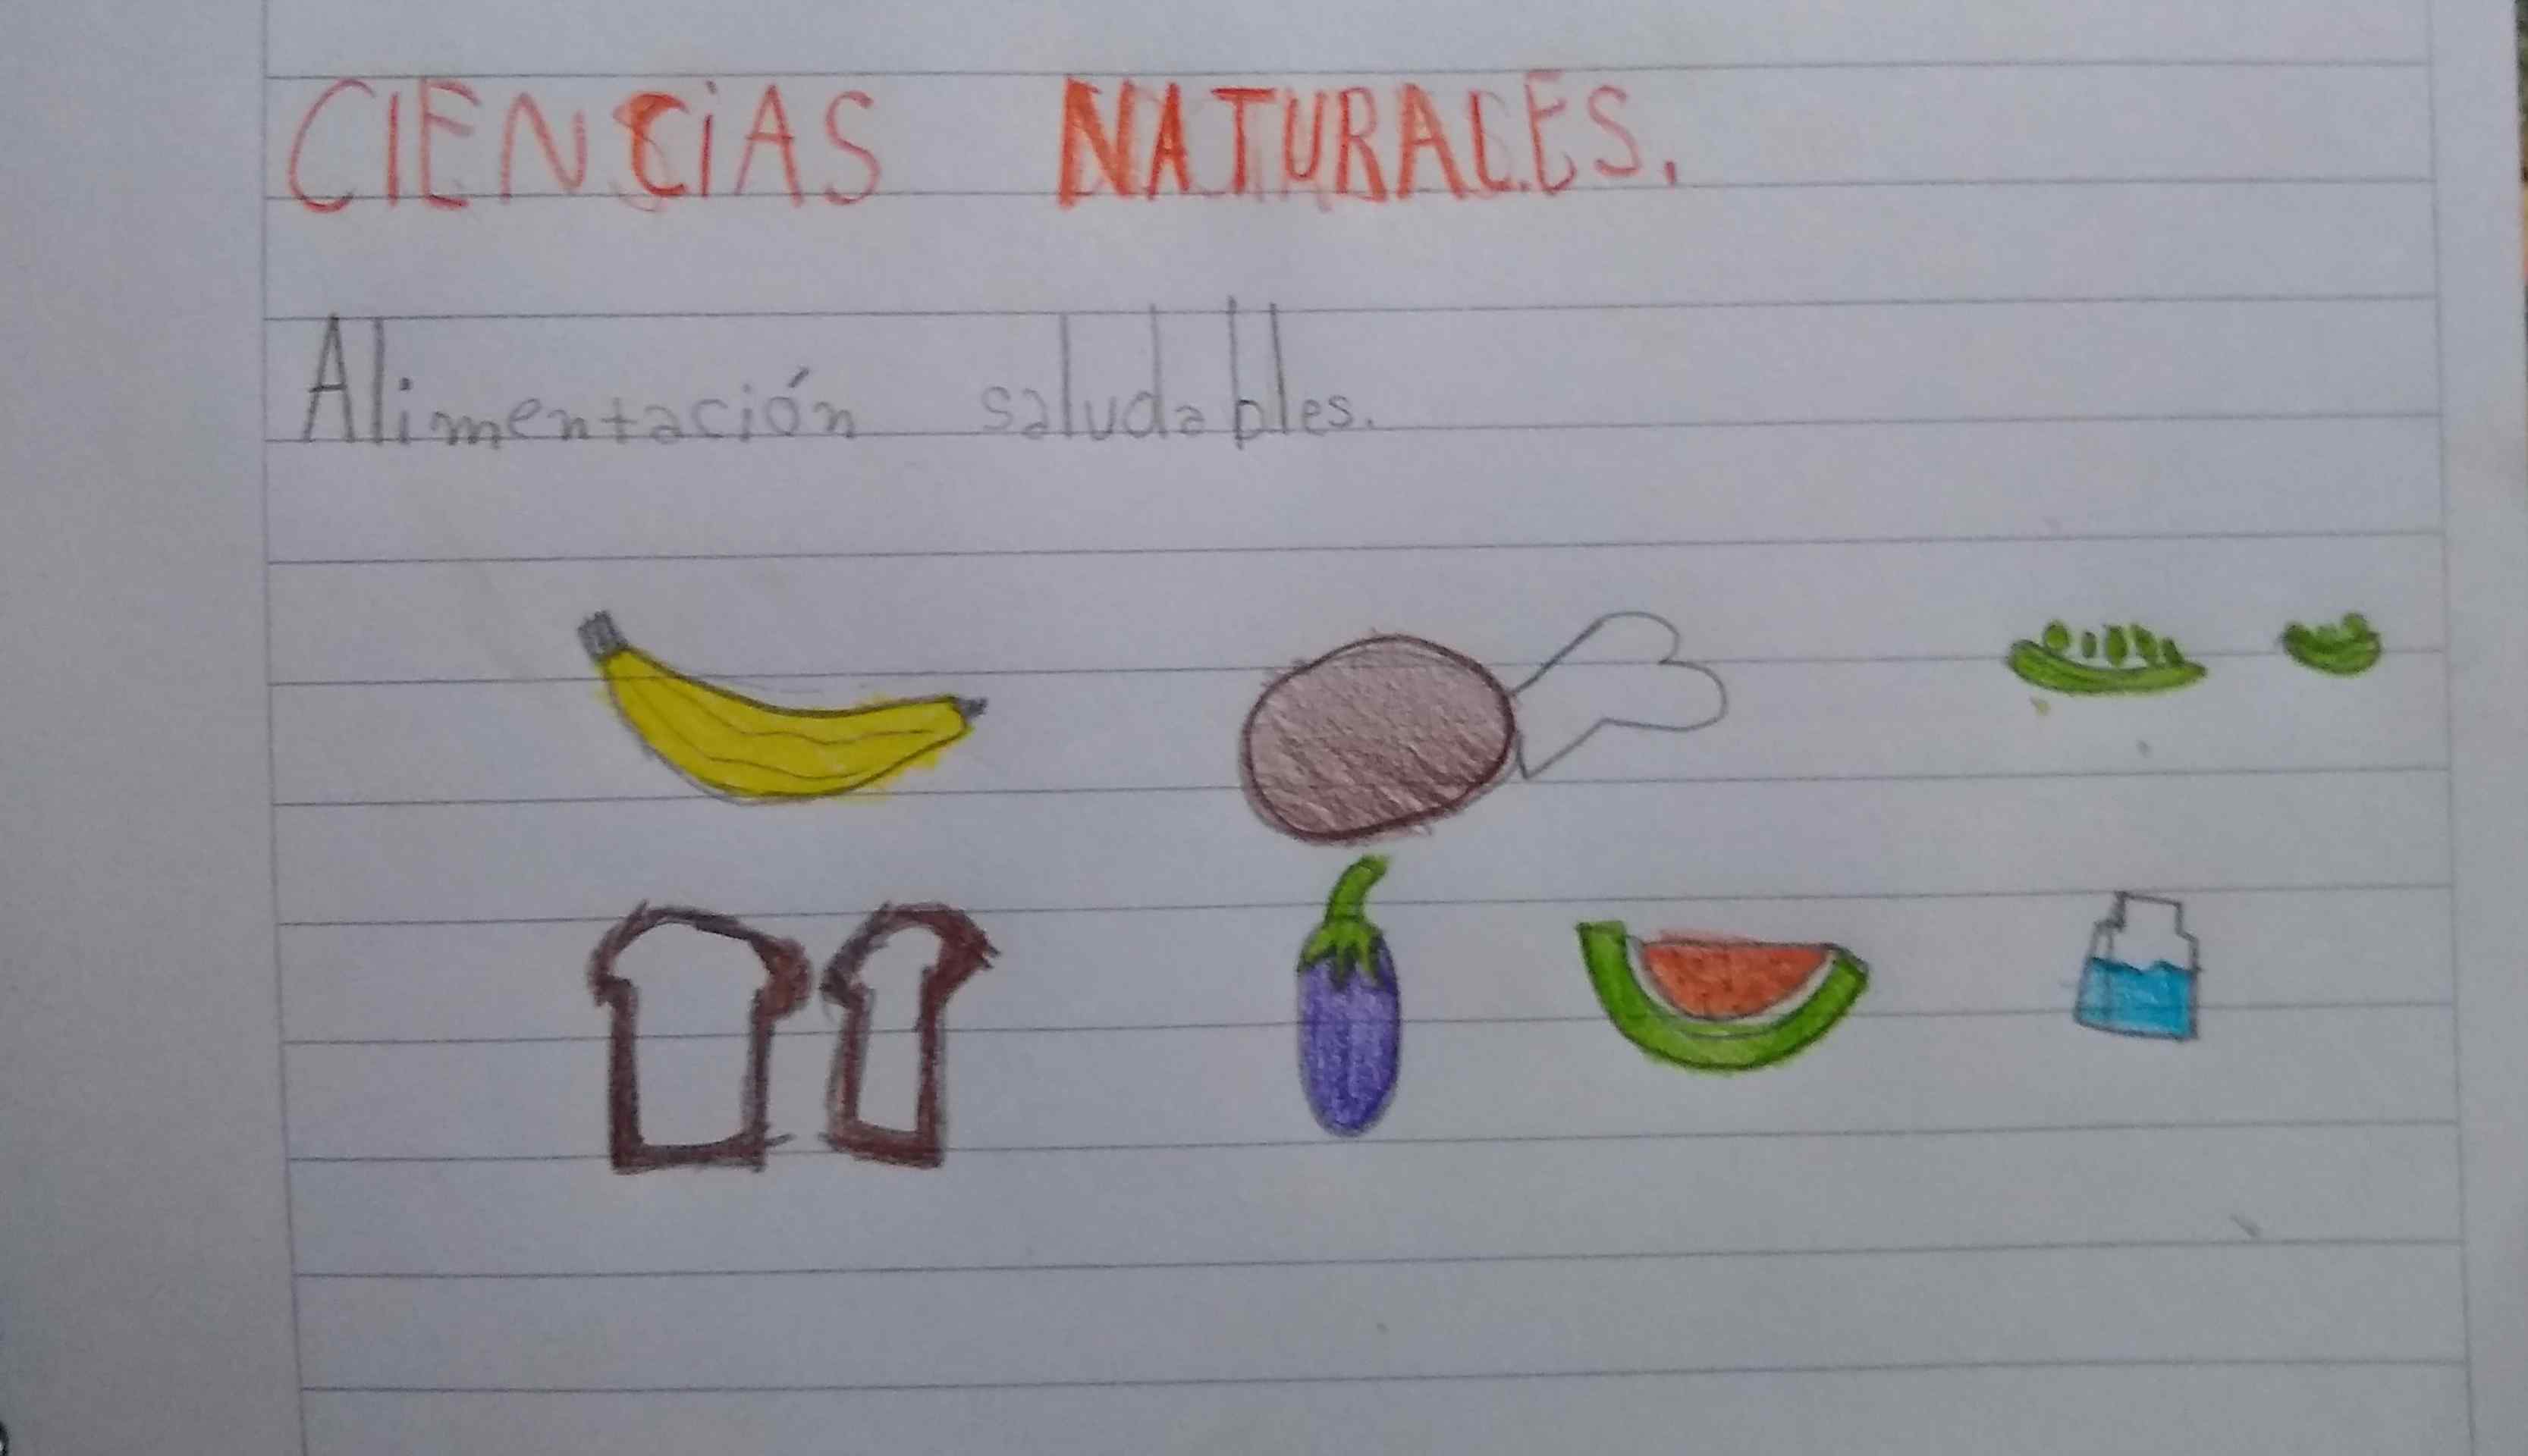 CIENCiAS NATURALES.
Alimentación saludables.